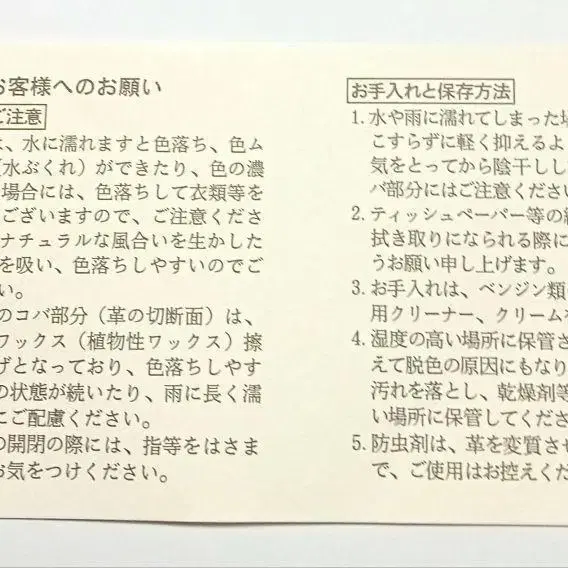 お客様へのお願い
ご注意
は、水に濡れますと色落ち、色ム
（水ぶくれ）ができたり、色の濃
場合には、色落ちして衣類等を
ございますので、ご注意くださ
ナチュラルな風合いを生かした
を吸い、色落ちしやすいのでご
い。
のコバ部分（革の切断面）は、
ワックス（植物性ワックス）擦
げとなっており、色落ちしやす
の状態が続いたり、雨に長く濡
にご配慮ください。
の開閉の際には、指等をはさま
お気をつけください。
お手入れと保存方法
1. 水や雨に濡れてしまった場
こすらずに軽く抑えるよ
気をとってから陰干しし
バ部分にはご注意ください
2. ティッシュペーパー等の紙
拭き取りになられる際に
うお願い申し上げます。
3. お手入れは、ベンジン類
用クリーナー、クリームを
4. 湿度の高い場所に保管さ
えて脱色の原因にもなり
汚れを落とし、乾燥剤等
い場所に保管してくださ
5. 防虫剤は、革を変質させ
で、ご使用はお控えくだ